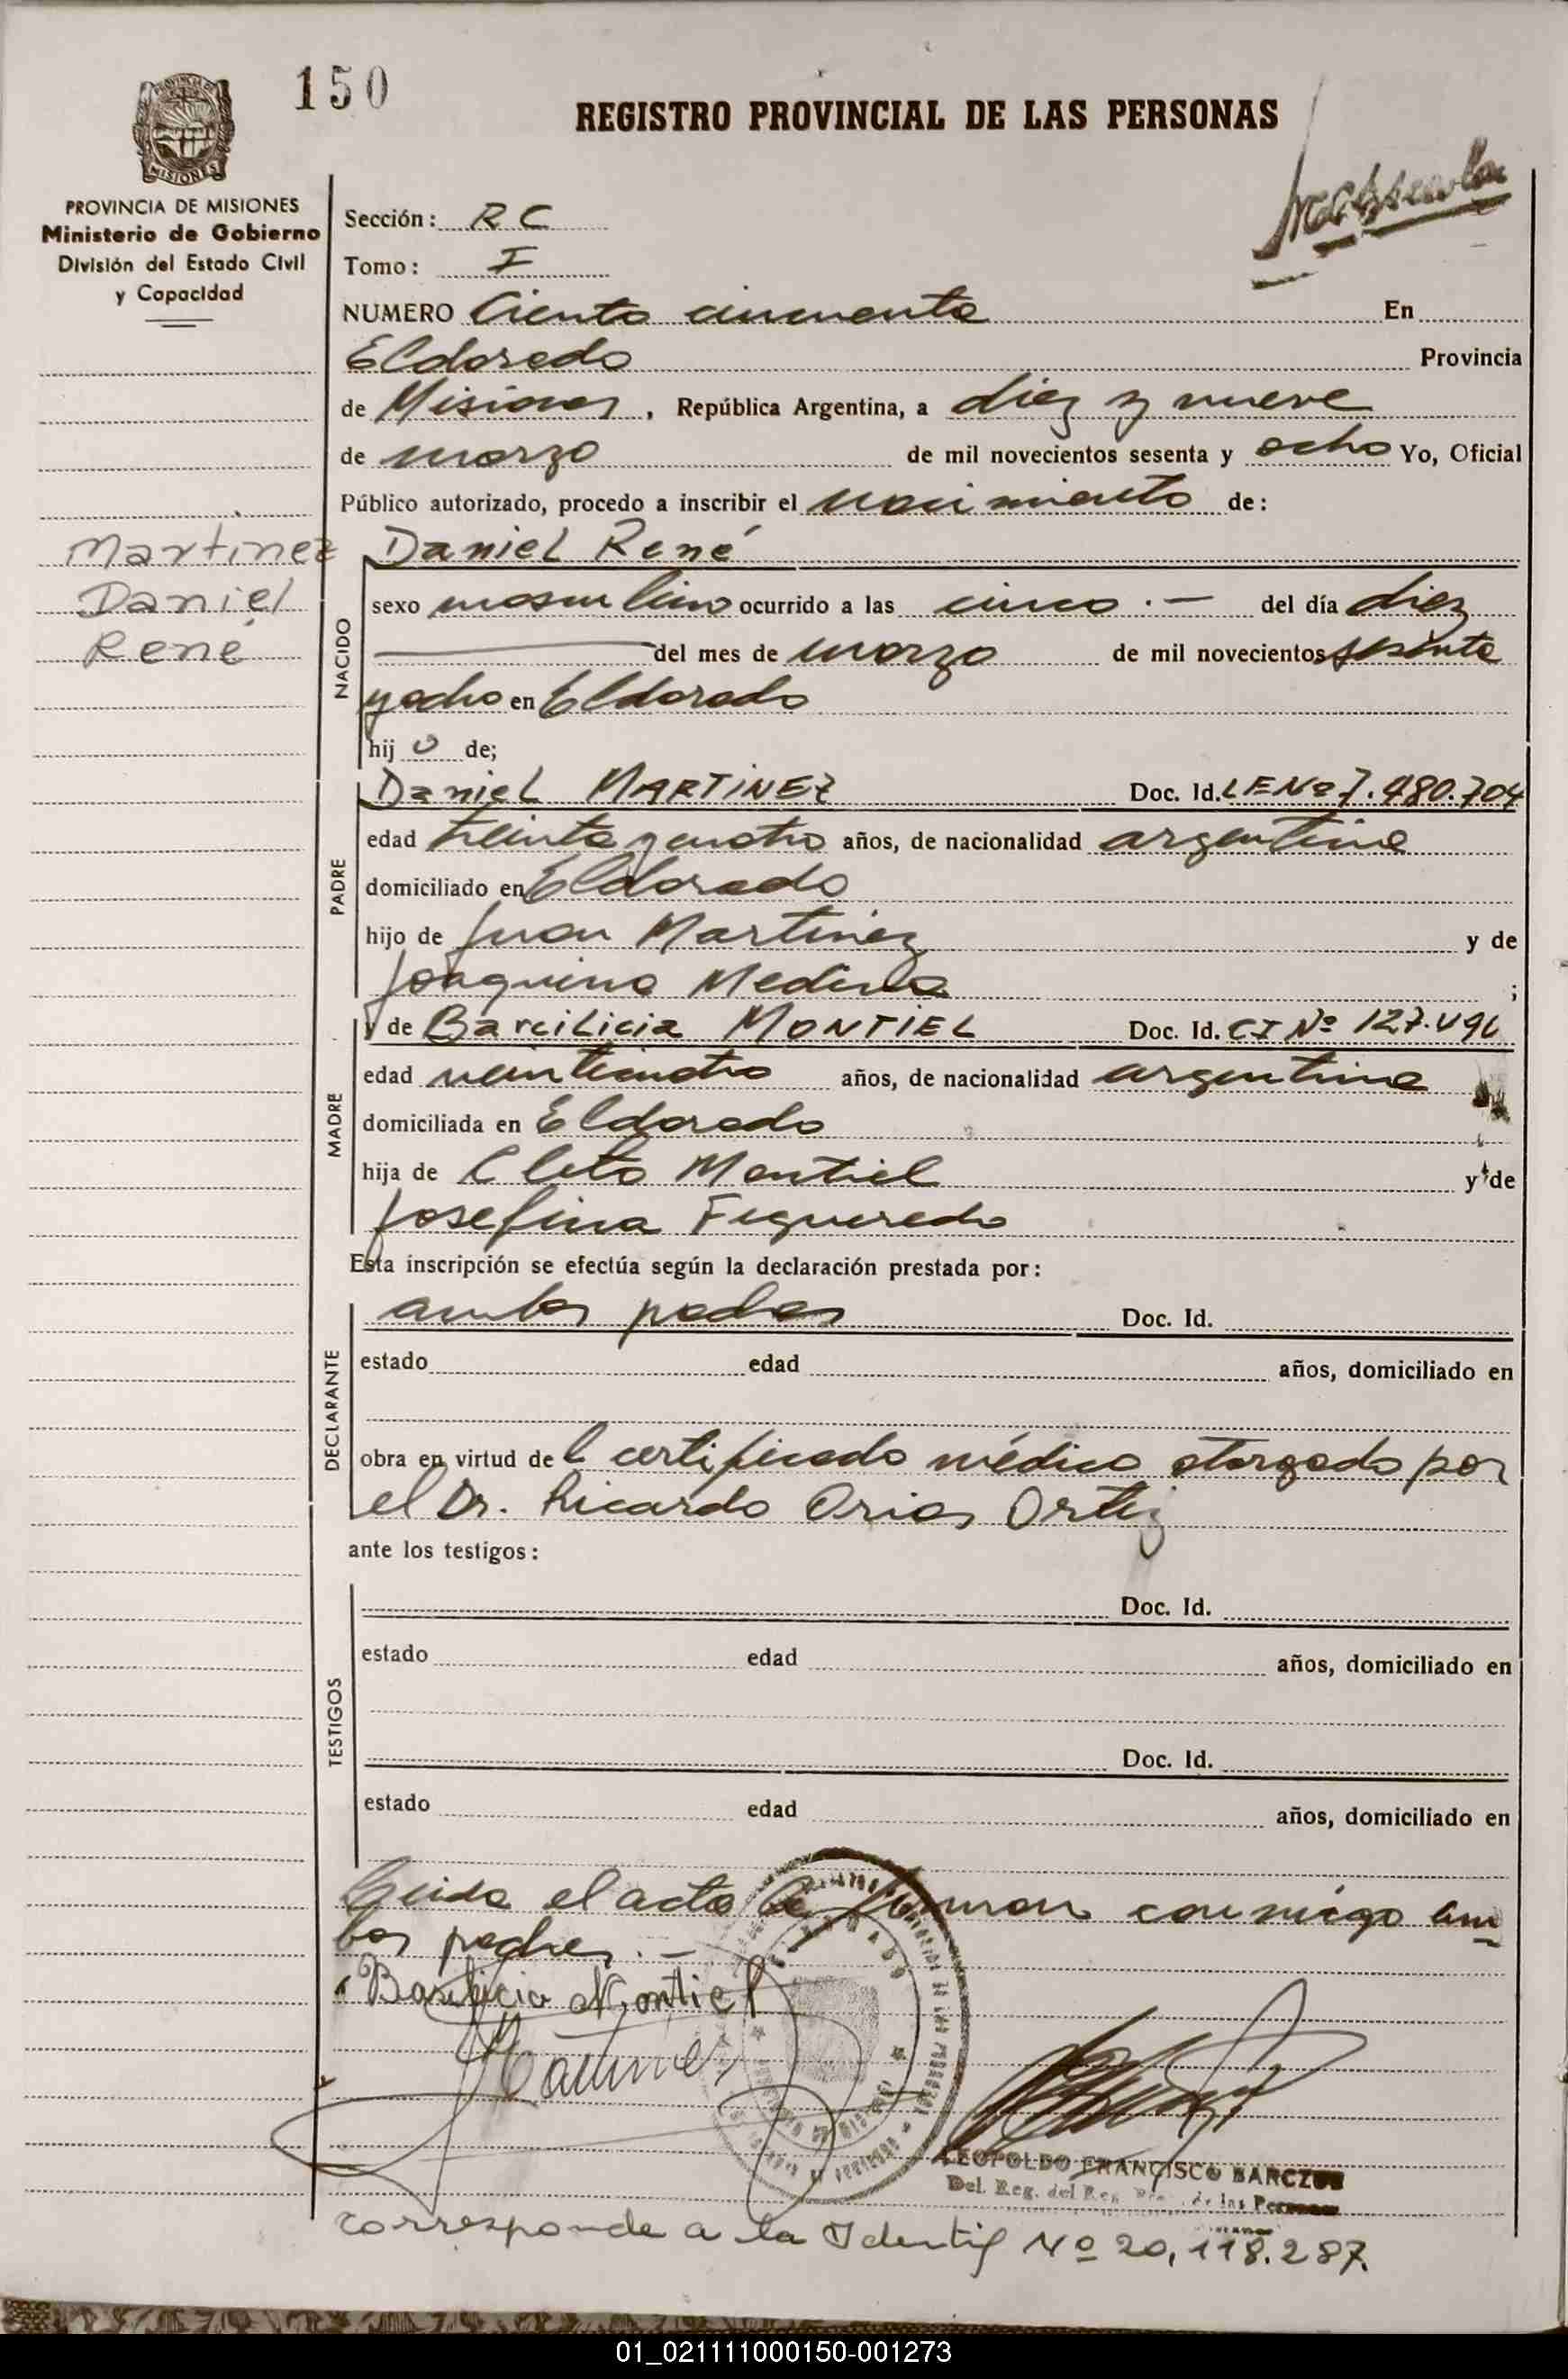 150
REGISTRO PROVINCIAL DE LAS PERSONAS
PROVINCIA DE MISIONES
MISIONES
PROVINCIA DE MISIONES
Ministerio de Gobierno
División del Estado Civil
y Capacidad
Sección: R C
Tomo: I
NUMERO Ciento cincuenta En
Eldorado Provincia
de Misiones, República Argentina, a diez y nueve
de marzo de mil novecientos sesenta y ocho Yo, Oficial
Público autorizado, procedo a inscribir el nacimiento de:
Martinez
Daniel
René
Daniel René
NACIDO
sexo masculino ocurrido a las cinco .- del día diez
del mes de marzo de mil novecientos sesenta
y ocho en Eldorado
hij o de;
PADRE
Daniel MARTINEZ Doc. Id. LE Nº 7.480.704
edad treinta y cuatro años, de nacionalidad argentina
domiciliado en Eldorado
hijo de Juan Martinez y de
Joaquina Medina ;
MADRE
y de Barcilicia MONTIEL Doc. Id. CI Nº
edad veinticuatro años, de nacionalidad argentina
domiciliada en Eldorado
hija de Cleto Montiel y de
Josefina Figueredo
Esta inscripción se efectúa según la declaración prestada por:
DECLARANTE
ambos padres Doc. Id.
estado edad años, domiciliado en
obra en virtud del certificado médico otorgado por
el Dr. Ricardo Arias Ortiz
ante los testigos:
TESTIGOS
Doc. Id.
estado edad años, domiciliado en
Doc. Id.
estado edad años, domiciliado en
Leida el acta la firman conmigo am
bos padres.-
Basilicia Montiel
Martinez
LEOPOLDO FRANCISCO BARCZUK
Del. Reg. del Reg. de las Personas
corresponde a la Identif Nº 20,118.287.
01_021111000150-001273